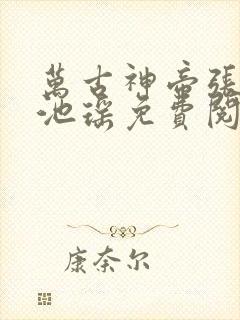 萬古神帝張
池瑤免費閱
康奈尔